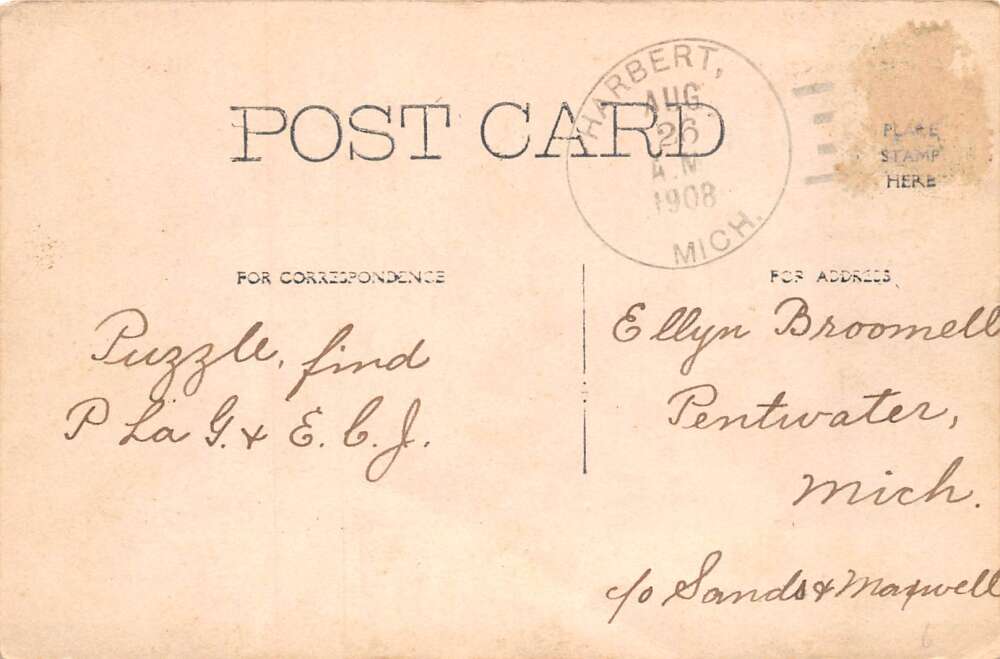 POST CARD
HARBERT,
AUG
26
A.M
1908
MICH.
PLACE
STAMP
HERE
FOR CORRESPONDENCE
FOR ADDRESS
Puzzle, find
P La G. & E. C. J.
Ellyn Broomell
Pentwater,
Mich.
c/o Sands & Maxwell
6